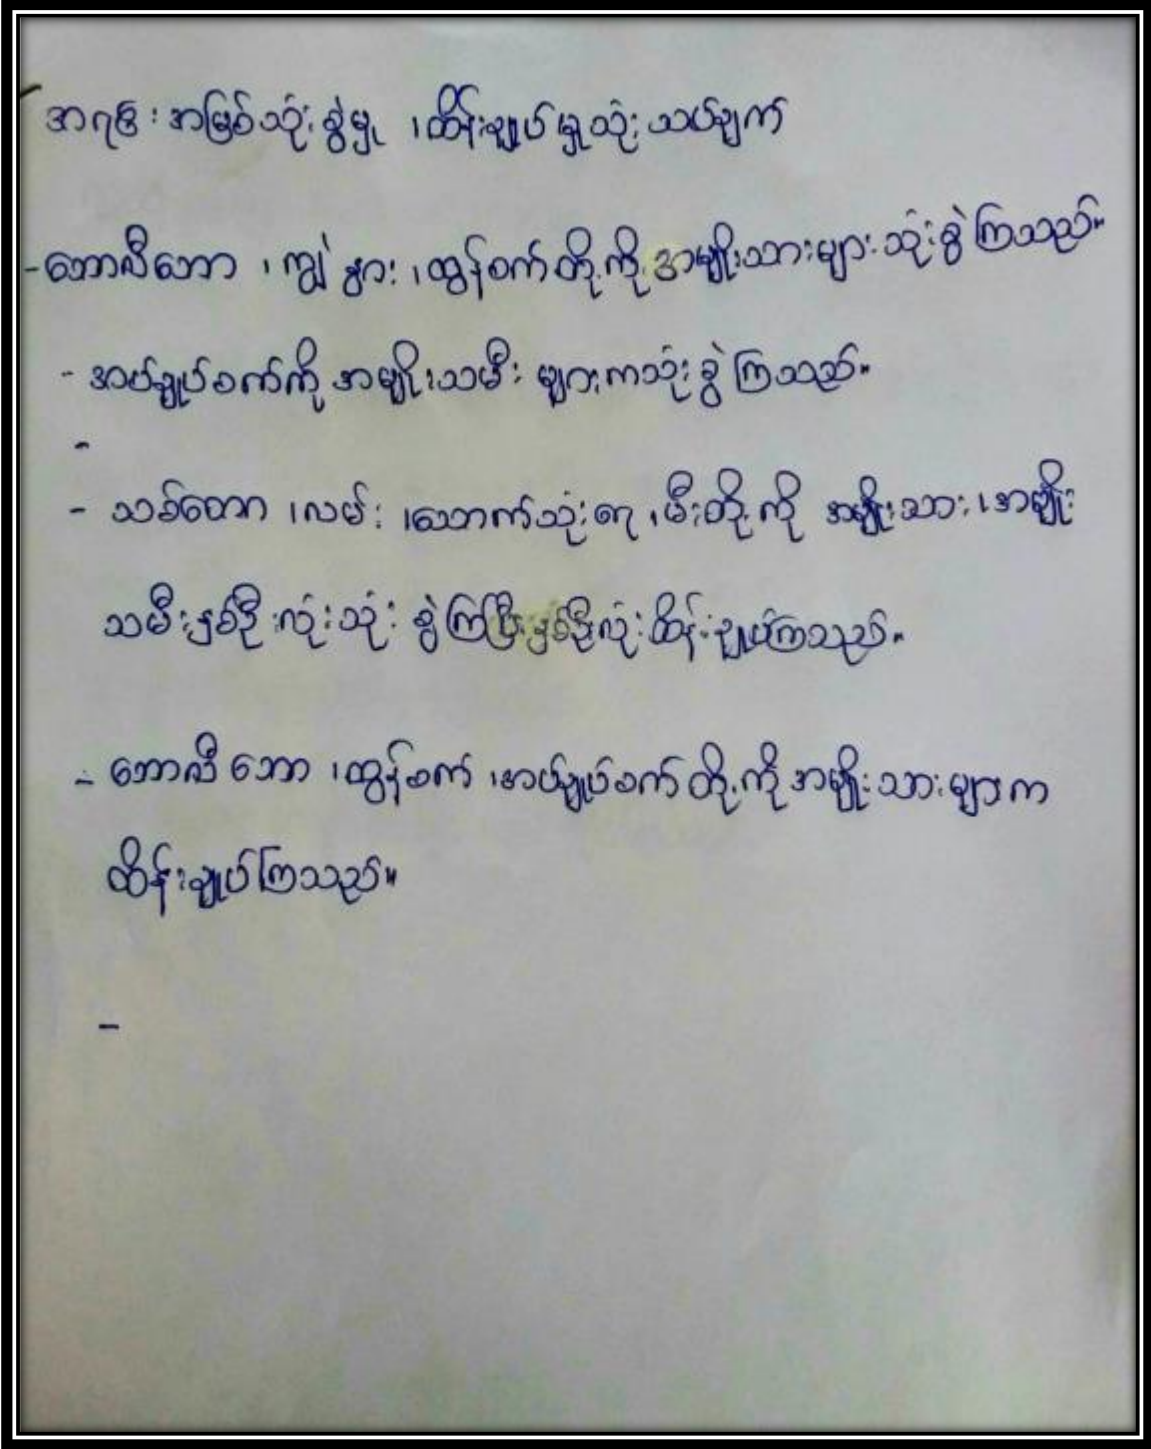 အရင်းအမြစ်သုံးစွဲမှု ၊ထိန်းချုပ်မှုသုံးသပ်ချက်
-ဘောလီဘော ၊ကျွဲနွား ၊ထွန်စက်တို့ကို အမျိုးသားများသုံးစွဲကြသည်။
- အပ်ချုပ်စက်ကို အမျိုးသမီးများကသုံးစွဲကြသည်။
-
- သစ်တော ၊လမ်း ၊သောက်သုံးရေ ၊မီးတို့ကို အမျိုးသား ၊အမျိုး
သမီးနှစ်ဦးလုံးသုံးစွဲကြပြီးနှစ်ဦးလုံးထိန်းချုပ်ကြသည်။
- ဘောလီဘော ၊ထွန်စက် ၊အပ်ချုပ်စက်တို့ကို အမျိုးသားများက
ထိန်းချုပ်ကြသည်။
-